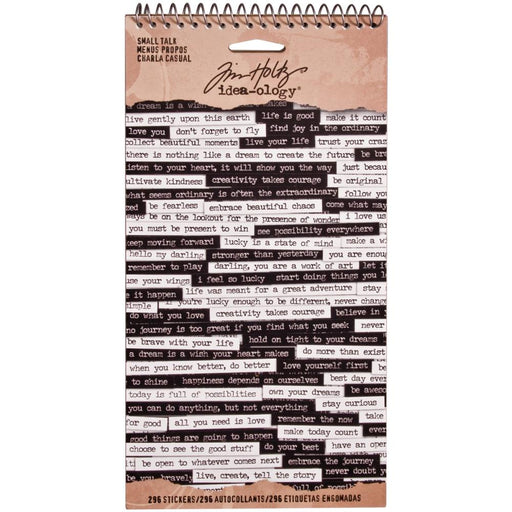 SMALL TALK
MENUS PROPOS
CHARLA CASUAL
Tim Holtz
idea-ology®
a dream is a wish makes
live gently upon this earth life is good make it count
love you don't forget to fly find joy in the ordinary
collect beautiful moments live your life trust your craz
there is nothing like a dream to create the future be br
listen to your heart, it will show you the way just becau
ultivate kindness creativity takes courage be original
what seems ordinary is often the extraordinary follow you
zed be fearless embrace beautiful chaos come what may
ways be on the lookout for the presence of wonder i love us
you must be present to win see possibility everywhere
keep moving forward lucky is a state of mind make a wi
hello my darling stronger than yesterday you are enoug
remember to play darling, you are a work of art let it
use your wings i feel so lucky start doing things you lo
e it happen life was meant for a great adventure stay
simple if you're lucky enough to be different, never change
do what you love creativity takes courage believe in
no journey is too great if you find what you seek never
be brave with your life hold on tight to your dreams
a dream is a wish your heart makes do more than exist
when you know better, do better love yourself first be
to shine happiness depends on ourselves best day ever
today is full of possiblities own your dreams be aweso
you can do anything, but not everything stay curious
for good all you need is love remember the now take
good things are going to happen make today count ever
choose to see the good stuff do your best let it be
it be open to whatever comes next embrace the journey
be you bravely live, create, tell the story never doubt y
full of wonder
296 STICKERS/296 AUTOCOLLANTS/296 ETIQUETAS ENGOMADAS